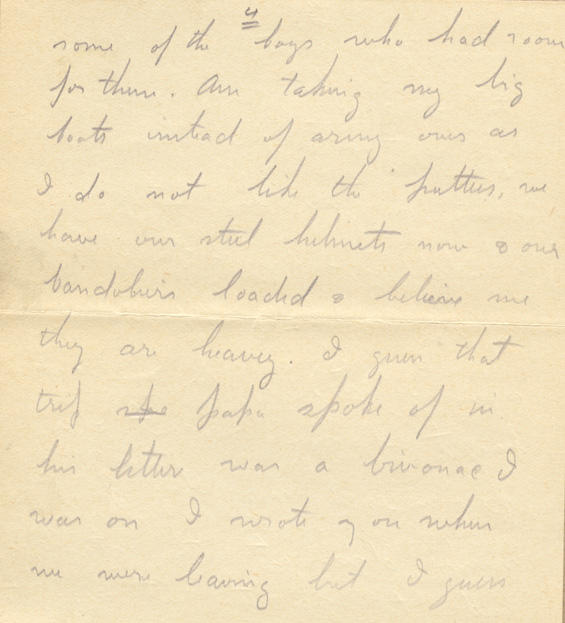 4
some of the boys who had room
for them. Am taking my big
boots instead of army ones as
I do not like the puttees, we
have our steel helmets now & our
bandoliers loaded & believe me
they are heavy. I guess that
trip spo papa spoke of in
his letter was a bivouac I
was on I wrote you when
we were leaving but I guess